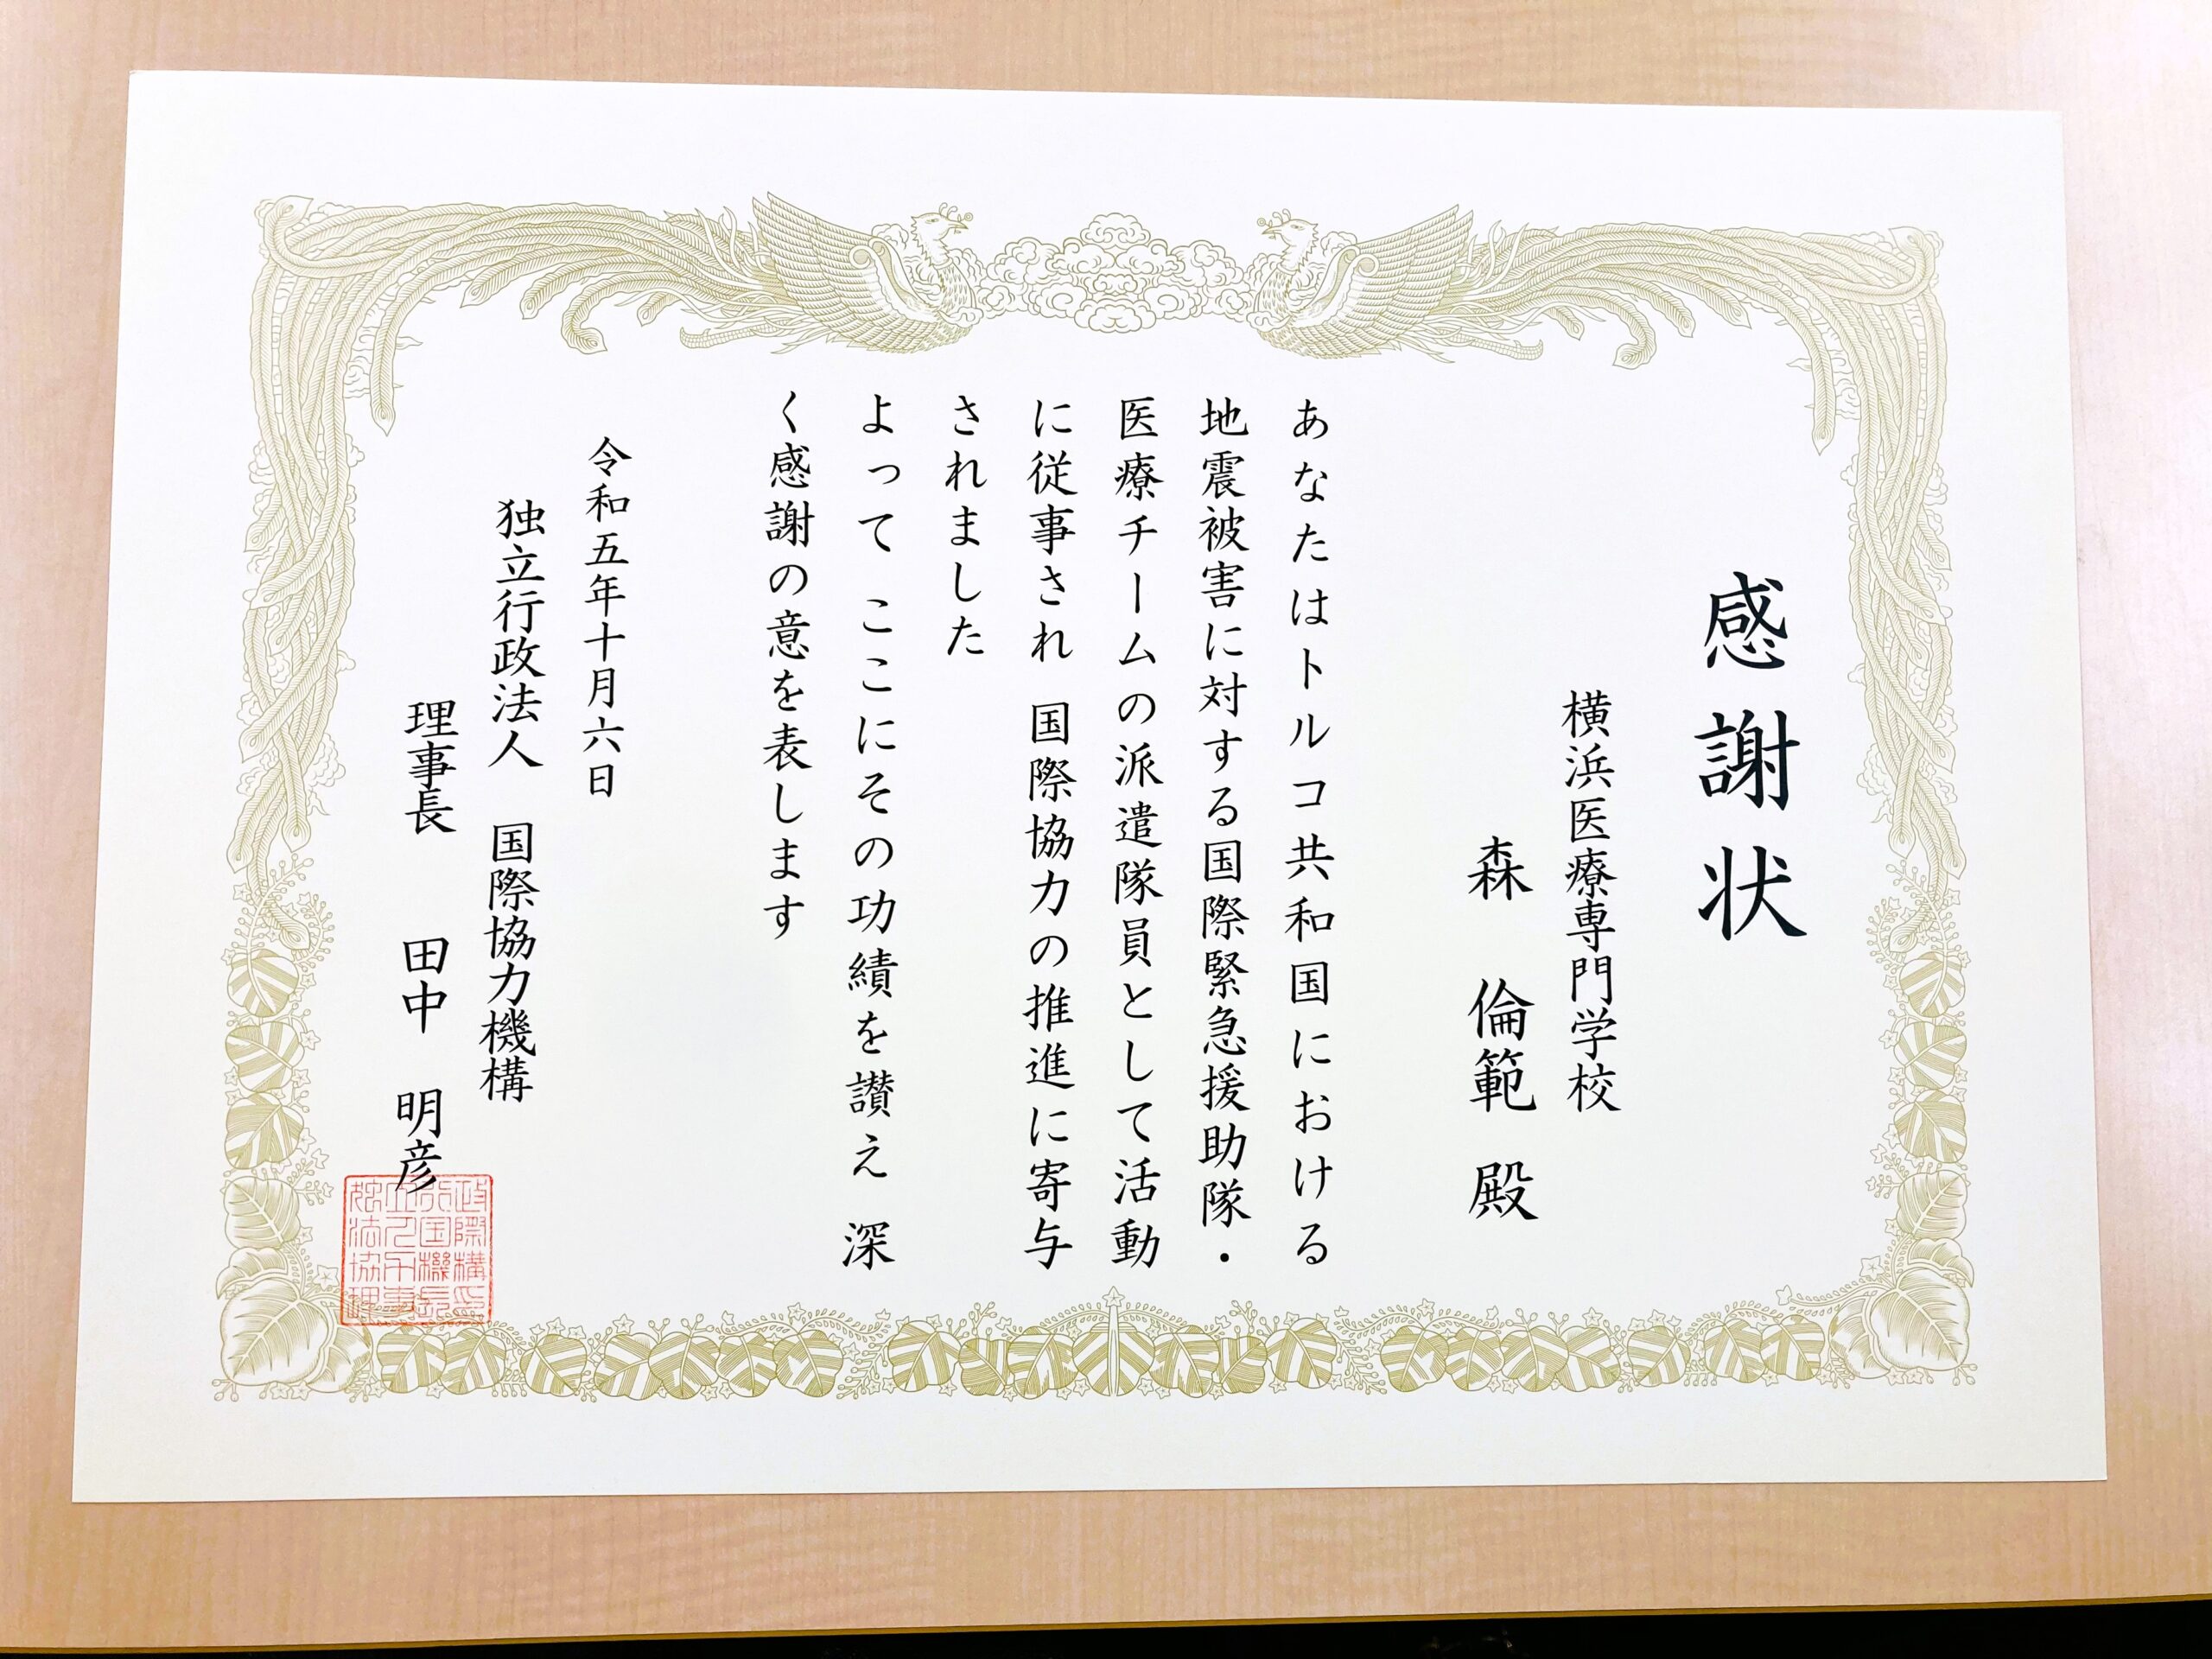 感謝状
横浜医療専門学校
森 倫範 殿
あなたはトルコ共和国における
地震被害に対する国際緊急援助隊・
医療チームの派遣隊員として活動
に従事され 国際協力の推進に寄与
されました
よって ここにその功績を讃え 深
く感謝の意を表します
令和五年十月六日
独立行政法人 国際協力機構
理事長 田中 明彦